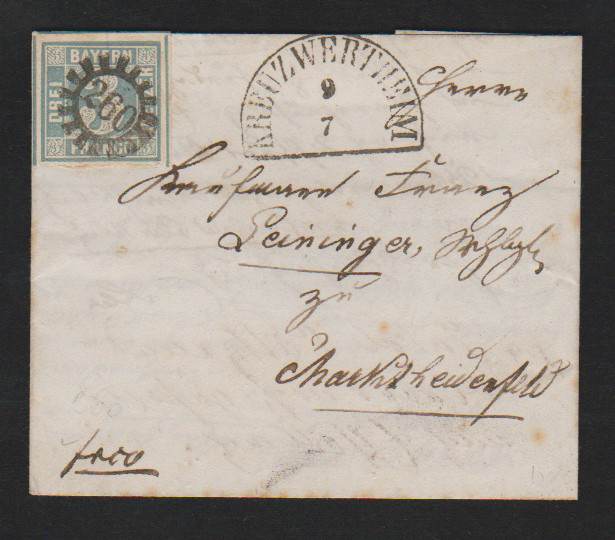 BAYERN
DREI
FRANCO
260
KREUZWERTHEIM
9
7
Herrn
Kaufmann Franz
Leininger,
zu
Marktheidenfeld
frco